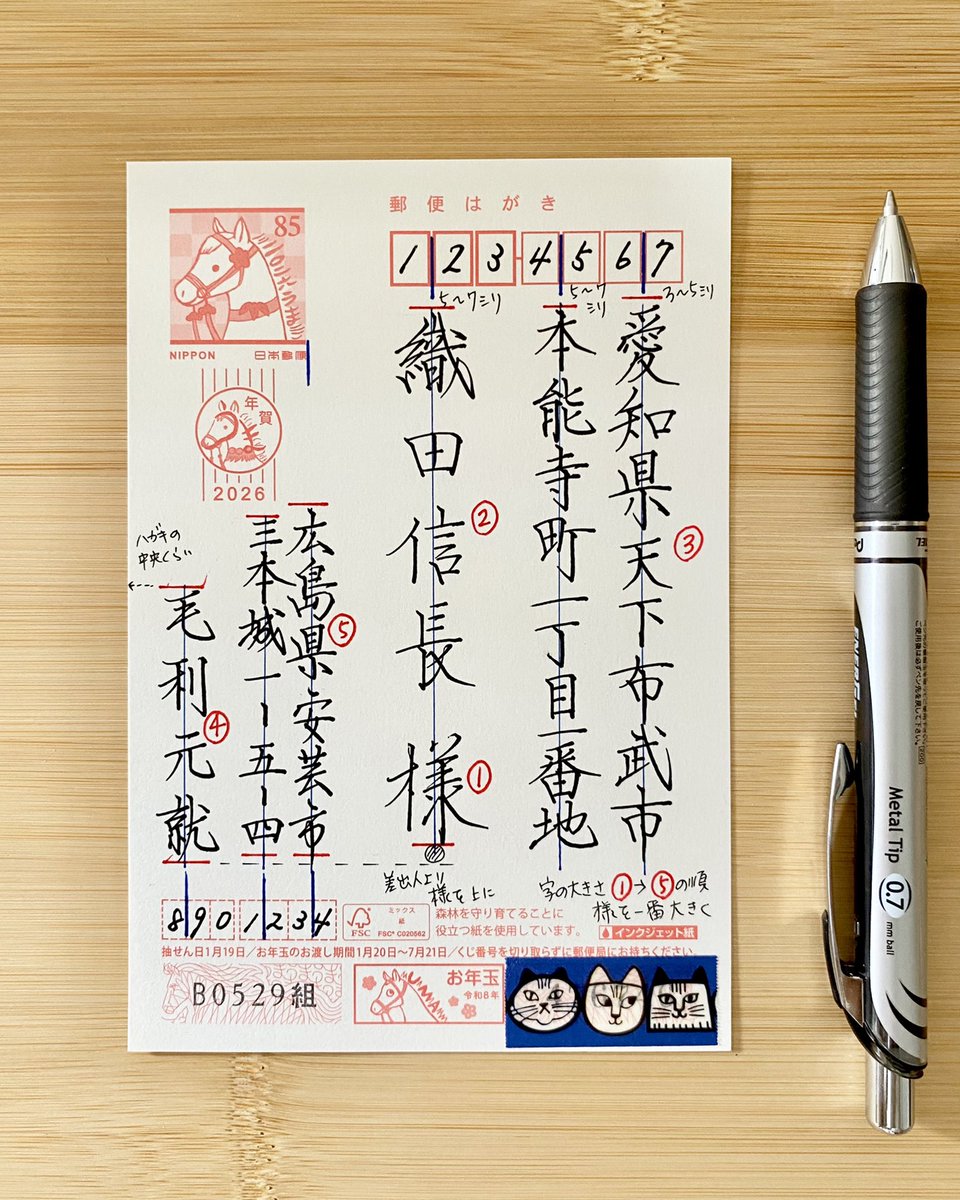 郵便はがき
85
NIPPON 日本郵便
年賀
2026
123-4567
5〜7ミリ
5〜7ミリ
3〜5ミリ
愛知県天下布武市
③
本能寺町一丁目一番地
織田信長様
②
①
広島県安芸市
⑤
三本城一ー五ー四
毛利元就
④
ハガキの
中央くらい
差出人より
様を上に
字の大きさ①→⑤の順
様を一番大きく
890 1234
ミックス
紙
FSC
FSC® C020562
森林を守り育てることに
役立つ紙を使用しています。
インクジェット紙
抽せん日1月19日/お年玉のお渡し期間1月20日〜7月21日/くじ番号を切り取らずに郵便局にお持ちください。
B0529組
お年玉
令和8年
Metal Tip
0.7
mm ball